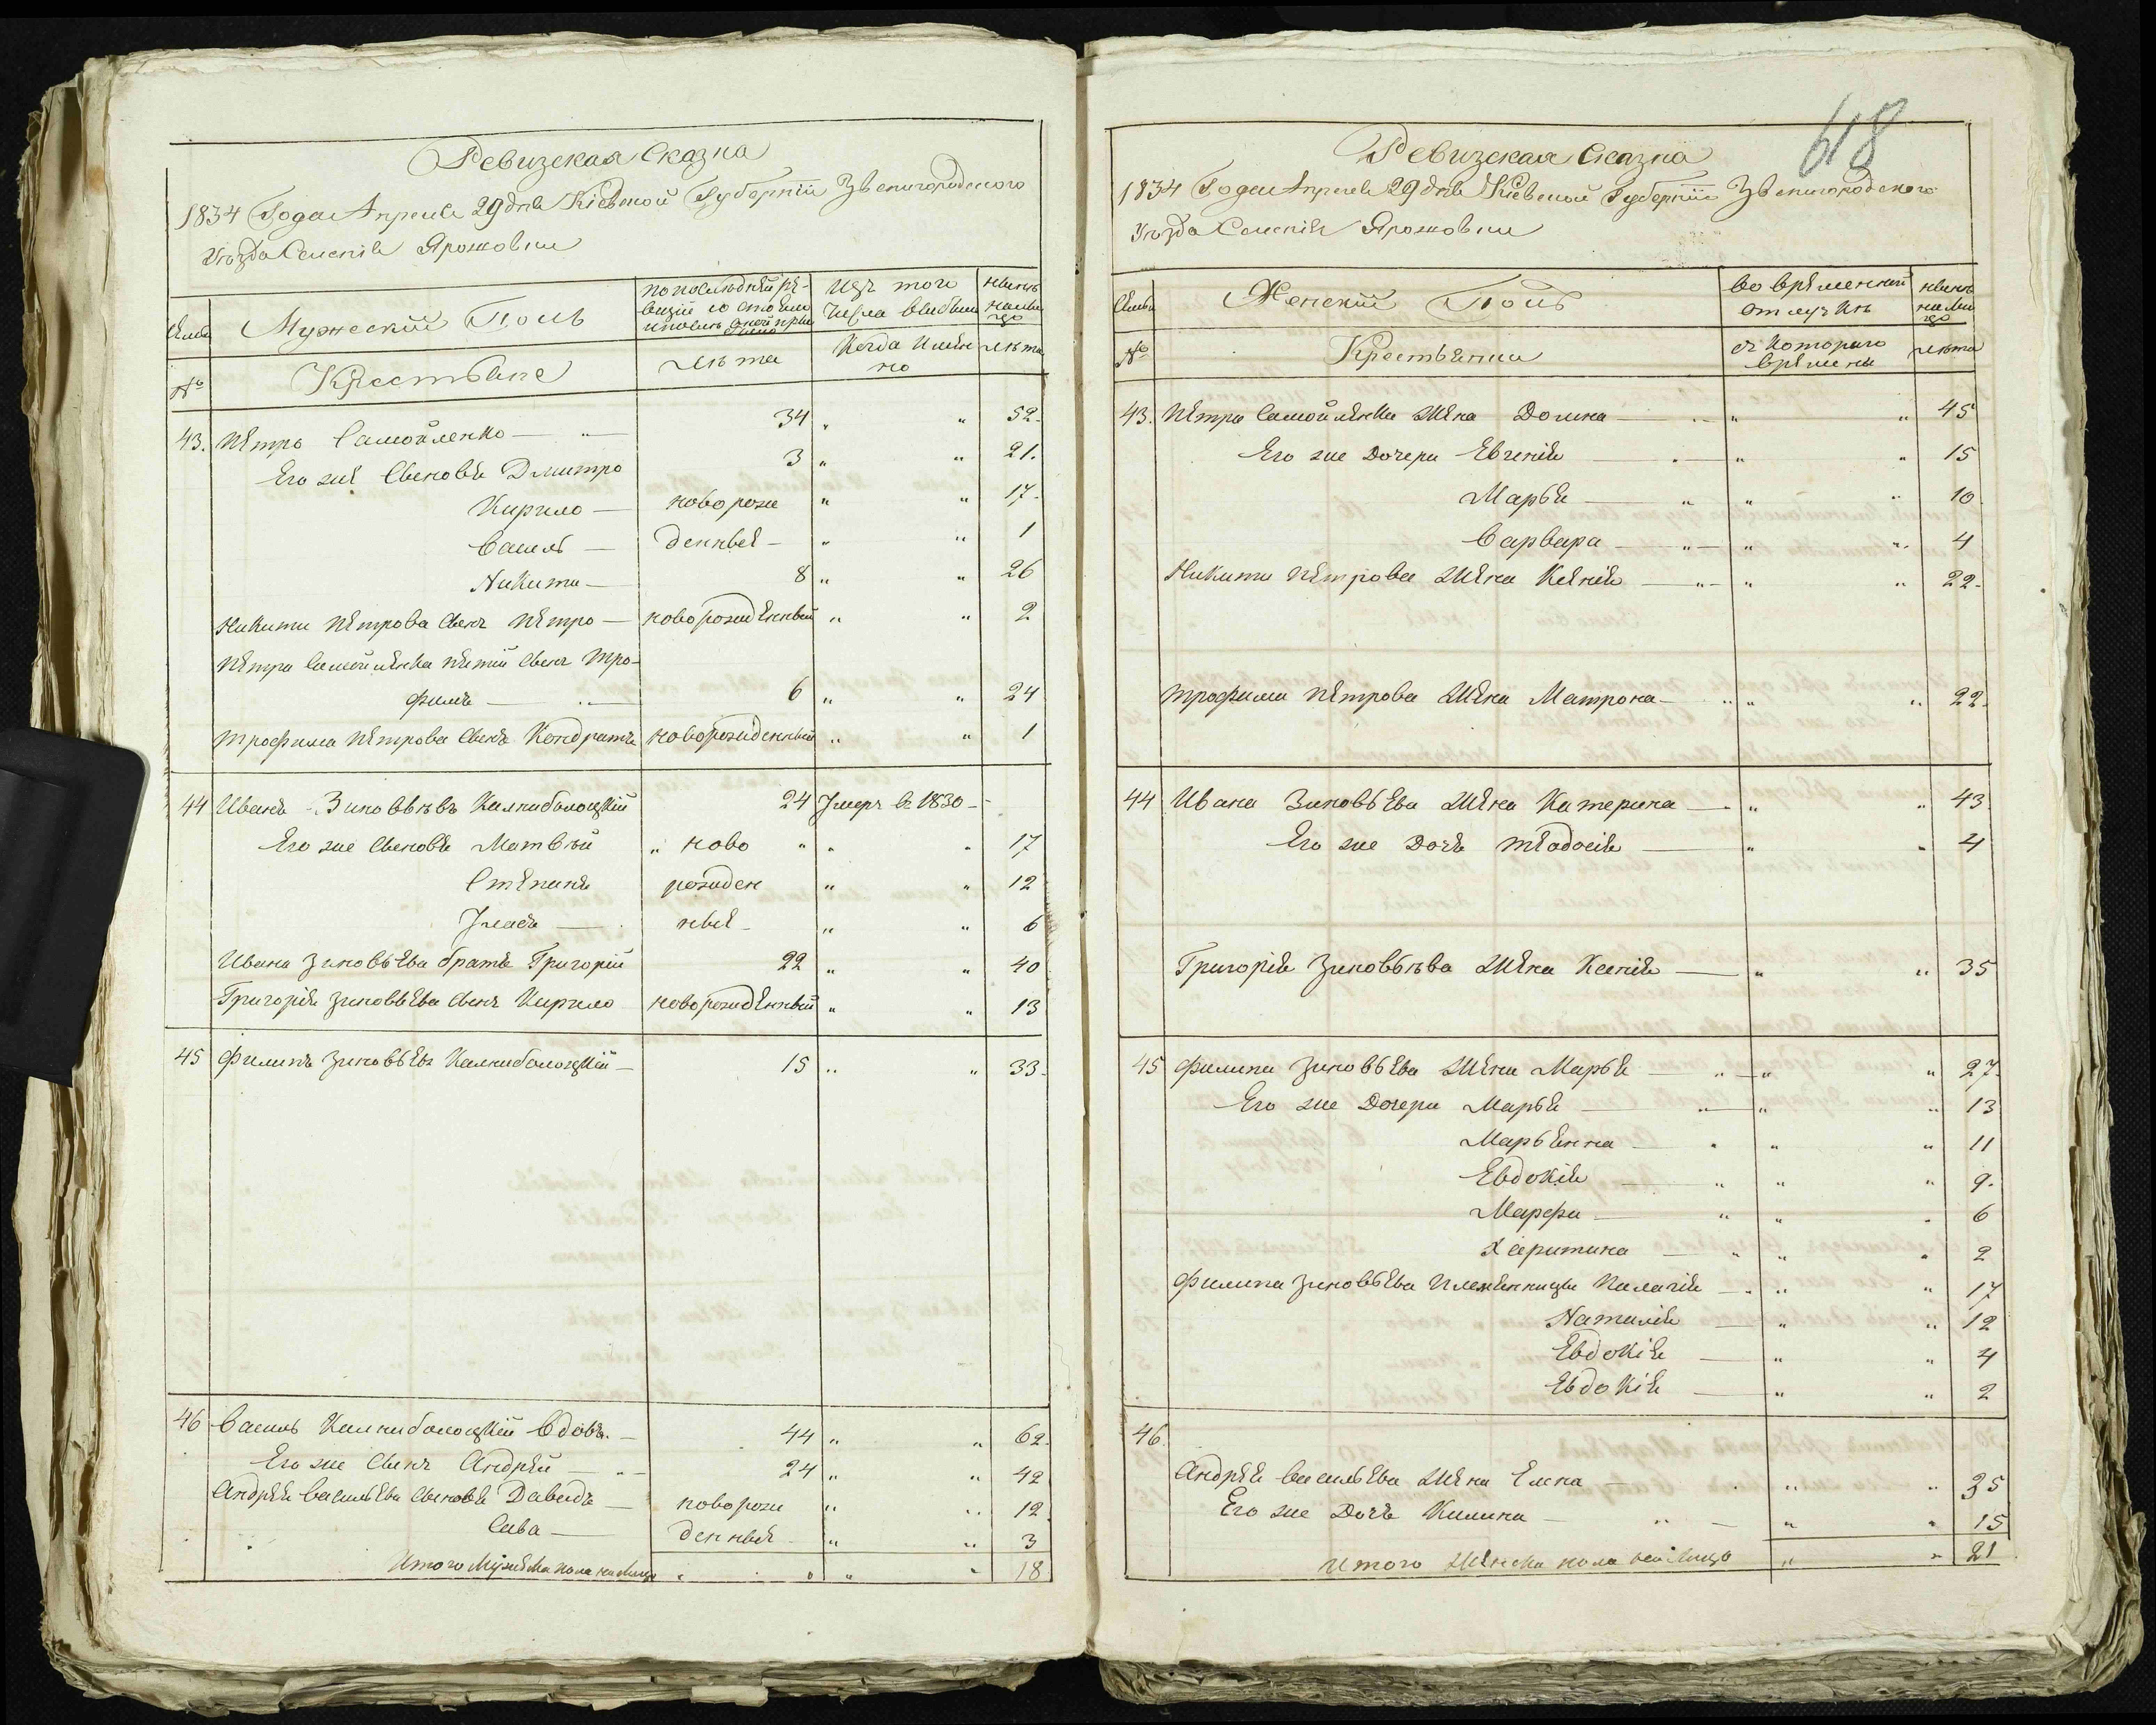 Ревизская Сказка
1834 Года Апреля 29 дня Кіевской Губерніи Звенигородского
Уезда Селенія Ярошовки
Семьи
Мужескій Полъ
по последней ре-
визіи состояло
и после оной прибыло
Изъ того
числа выбыло
ныне
на лицо
№
Крестьяне
лета
Когда имен
но
лета
43. Петро Самойленко — 34 „ „ 52.
Его же Сыновья Дмитро 3 „ „ 21.
Кирило — новорож „ „ 17.
Василь — денные — „ „ 1
Никита — 8 „ „ 26
Никиты Петрова Сынъ Петро — новорожденный „ „ 2
Петра Самойленка пятій Сынъ Тро-
фимъ — 6 „ „ 24
Трофима Петрова Сынъ Кондратъ новорожденный „ „ 1
44 Иванъ Зиновьевъ Калниболоцкій 24 Умеръ въ 1830 —
Его же Сыновья Матвѣй „ ново „ „ „ 17
Степанъ рожден „ „ 12
Уласъ — ные — „ „ 6
Ивана Зиновьева братъ Григорій 22 „ „ 40
Григорія Зиновьева Сынъ Кирило новорожденный „ „ 13
45 Филипъ Зиновьевъ Калниболоцкій — 15 „ „ 33.
46 Василь Калниболоцкій Вдовъ. — 44 „ „ 62.
Его же Сынъ Андрей — 24 „ „ 42
Андрея Васильева Сыновья Давидъ — новорож „ „ 12.
Сава — денные — „ „ 3
Итого Мужеска пола на лицо „ „ „ „ 18
618
Ревизская Сказка
1834 Года Апреля 29 дня Кіевской Губерніи Звенигородского
Уезда Селенія Ярошовки
Семьи
Женскій Полъ
во временной
отлучке
ныне
на ли
цо
№
Крестьянки
съ которого
времены
лета
43. Петра Самойленка Жена Домна — „ „ 45
Его же Дочери Евгенія — „ „ 15
Марья — „ „ „ 10
Варвара — „ — „ „ 4
Никиты Петрова Жена Ксенія — „ — „ „ 22.
Трофима Петрова Жена Матрона — „ „ „ 22.
44 Ивана Зиновьева Жена Катерина — „ „ 43
Его же Дочь Теодосія — „ „ 4
Григорія Зиновьева Жена Ксенія — „ „ 35
45 Филипа Зиновьева Жена Марья — „ — „ „ 27.
Его же Дочери Марья — „ — „ „ 13
Марьянна — „ „ „ 11
Евдокія — „ „ „ 9.
Марфа — „ „ „ 6
Харитина — „ „ „ 2
Филипа Зиновьева Племенницы Палагія — „ „ „ 17
Наталія — „ „ 12
Евдокія — „ „ 4
Евдокія — „ „ 2
46.
Андрея Васильева Жена Елена — „ „ 35
Его же Дочь Килина — „ — „ „ 15
Итого Женска пола на лицо „ „ 21